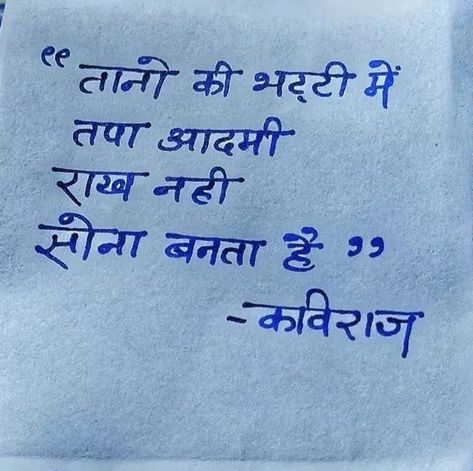 “ तानो की भट्टी में
तपा आदमी
राख नही
सोना बनता है ”
-कविराज